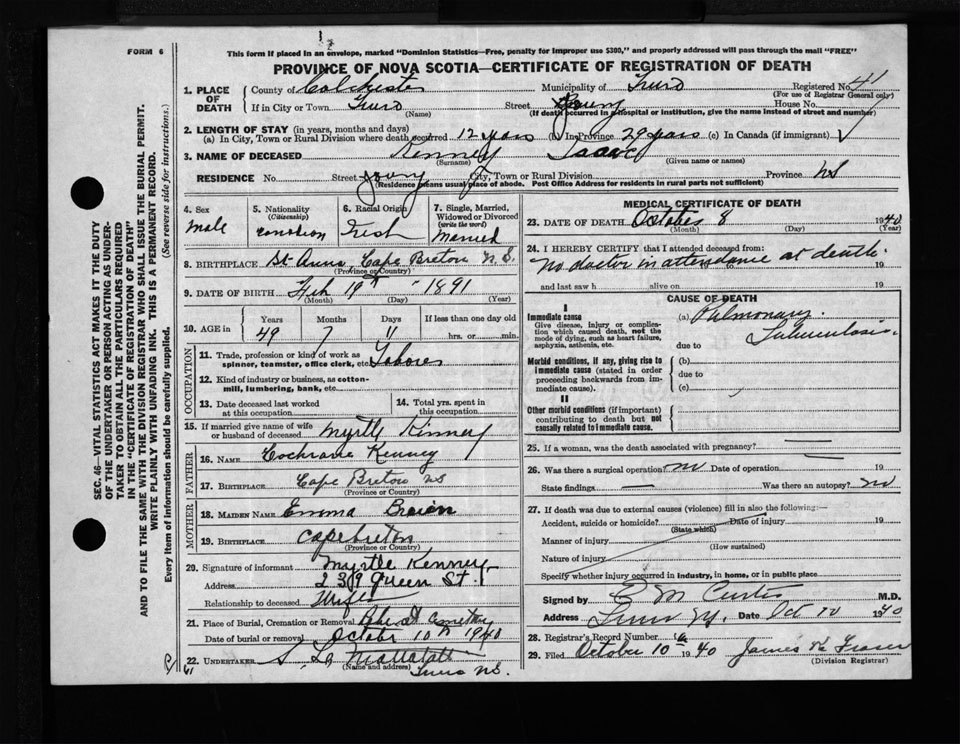 FORM 6
This form if placed in an envelope, marked "Dominion Statistics—Free, penalty for improper use $300," and properly addressed will pass through the mail "FREE"
PROVINCE OF NOVA SCOTIA—CERTIFICATE OF REGISTRATION OF DEATH
1. PLACE OF DEATH
County of Colchester Municipality of Truro Registered No. 41
(For use of Registrar General only)
If in City or Town Truro Street Young House No.
(Name) (If death occurred in a hospital or institution, give the name instead of street and number)
2. LENGTH OF STAY (in years, months and days)
(a) In City, Town or Rural Division where death occurred 12 years (b) In Province 29 years (c) In Canada (if immigrant)
3. NAME OF DECEASED Kenney Isaac
(Surname) (Given name or names)
RESIDENCE No. Street Young City, Town or Rural Division Province NS
(Residence means usual place of abode. Post Office Address for residents in rural parts not sufficient)
4. Sex
male
5. Nationality
(Citizenship)
Canadian
6. Racial Origin
Irish
7. Single, Married, Widowed or Divorced
(write the word)
Married
8. BIRTHPLACE St Anns Cape Breton N.S.
(Province or Country)
9. DATE OF BIRTH Feb 19th 1891
(Month) (Day) (Year)
10. AGE in
Years Months Days If less than one day old
49 7 11 hrs. or min.
OCCUPATION
11. Trade, profession or kind of work as spinner, teamster, office clerk, etc. Laborer
12. Kind of industry or business, as cotton-mill, lumbering, bank, etc.
13. Date deceased last worked at this occupation
14. Total yrs. spent in this occupation
15. If married give name of wife or husband of deceased Myrtle Kinney
FATHER
16. NAME Cochrane Kenney
17. BIRTHPLACE Cape Breton NS
(Province or Country)
MOTHER
18. MAIDEN NAME Emma
19. BIRTHPLACE Cape breton
(Province or Country)
20. Signature of informant Myrtle Kenney
Address 239 Queen St.
Relationship to deceased Wife
21. Place of Burial, Cremation or Removal Cemetery
Date of burial or removal October 10th 1940
22. UNDERTAKER
(Name and address)
Truro NS.
MEDICAL CERTIFICATE OF DEATH
23. DATE OF DEATH October 8 1940
(Month) (Day) (Year)
24. I HEREBY CERTIFY that I attended deceased from:
No doctor in attendance at death. 19
and last saw h alive on 19
CAUSE OF DEATH
I
Immediate cause
Give disease, injury or complication which caused death, not the mode of dying, such as heart failure, asphyxia, asthenia, etc.
(a) Pulmonary Tuberculosis.
due to
Morbid conditions, if any, giving rise to immediate cause (stated in order proceeding backwards from immediate cause).
(b)
due to
(c)
II
Other morbid conditions (if important) contributing to death but not causally related to immediate cause.
25. If a woman, was the death associated with pregnancy?
26. Was there a surgical operation no Date of operation 19
State findings Was there an autopsy? no
27. If death was due to external causes (violence) fill in also the following:—
Accident, suicide or homicide? Date of injury 19
(State which)
Manner of injury
(How sustained)
Nature of injury
Specify whether injury occurred in industry, in home, or in public place
Signed by C M Curtis M.D.
Address Truro NS. Date Oct 10 1940
28. Registrar's Record Number
29. Filed October 10th 1940 James K Fraser
(Division Registrar)
SEC. 46—VITAL STATISTICS ACT MAKES IT THE DUTY
OF THE UNDERTAKER OR PERSON ACTING AS UNDERTAKER TO OBTAIN ALL THE PARTICULARS REQUIRED
IN THE "CERTIFICATE OF REGISTRATION OF DEATH"
AND TO FILE THE SAME WITH THE DIVISION REGISTRAR WHO SHALL ISSUE THE BURIAL PERMIT.
WRITE PLAINLY WITH UNFADING INK. THIS IS A PERMANENT RECORD.
Every item of information should be carefully supplied. (See reverse side for instructions.)